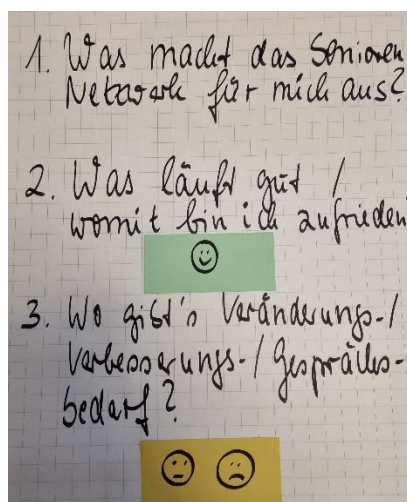 1. Was macht das Senioren
Netzwerk für mich aus?
2. Was läuft gut /
womit bin ich zufrieden
3. Wo gibt's Veränderungs-/
Verbesserungs-/Gesprächs-
bedarf?